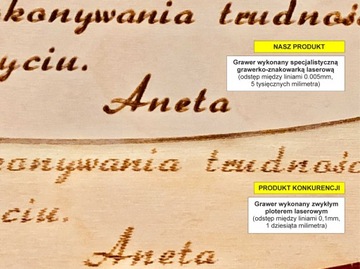 konywania trudnoś
yciu.
Aneta
NASZ PRODUKT
Grawer wykonany specjalistyczną
grawerko-znakowarką laserową
(odstęp między liniami 0.005mm,
5 tysięcznych milimetra)
konywania trudnośc
yciu.
Aneta
PRODUKT KONKURENCJI
Grawer wykonany zwykłym
ploterem laserowym
(odstęp między liniami 0,1mm,
1 dziesiąta milimetra)